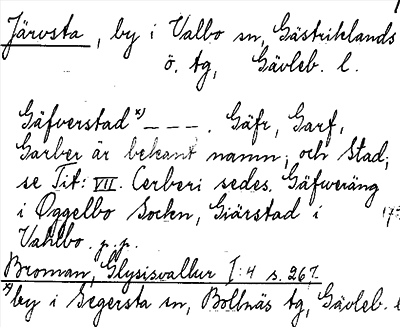 Järvsta, by i Valbo sn, Gästriklands
ö. tg, Gävleb. l.
Gäfverstad x) _ _ _ . Gäfr, Garf,
Garber är bekant namn, och Stad,
se Tit: VII. Cerberi sedes. Gäfweräng
i Oggelbo Socken, Giärstad i
Vahlbo. p.p.
Broman, Glysisvallur I:4 s. 267.
x) by i Segersta sn, Bollnäs tg, Gävleb. l